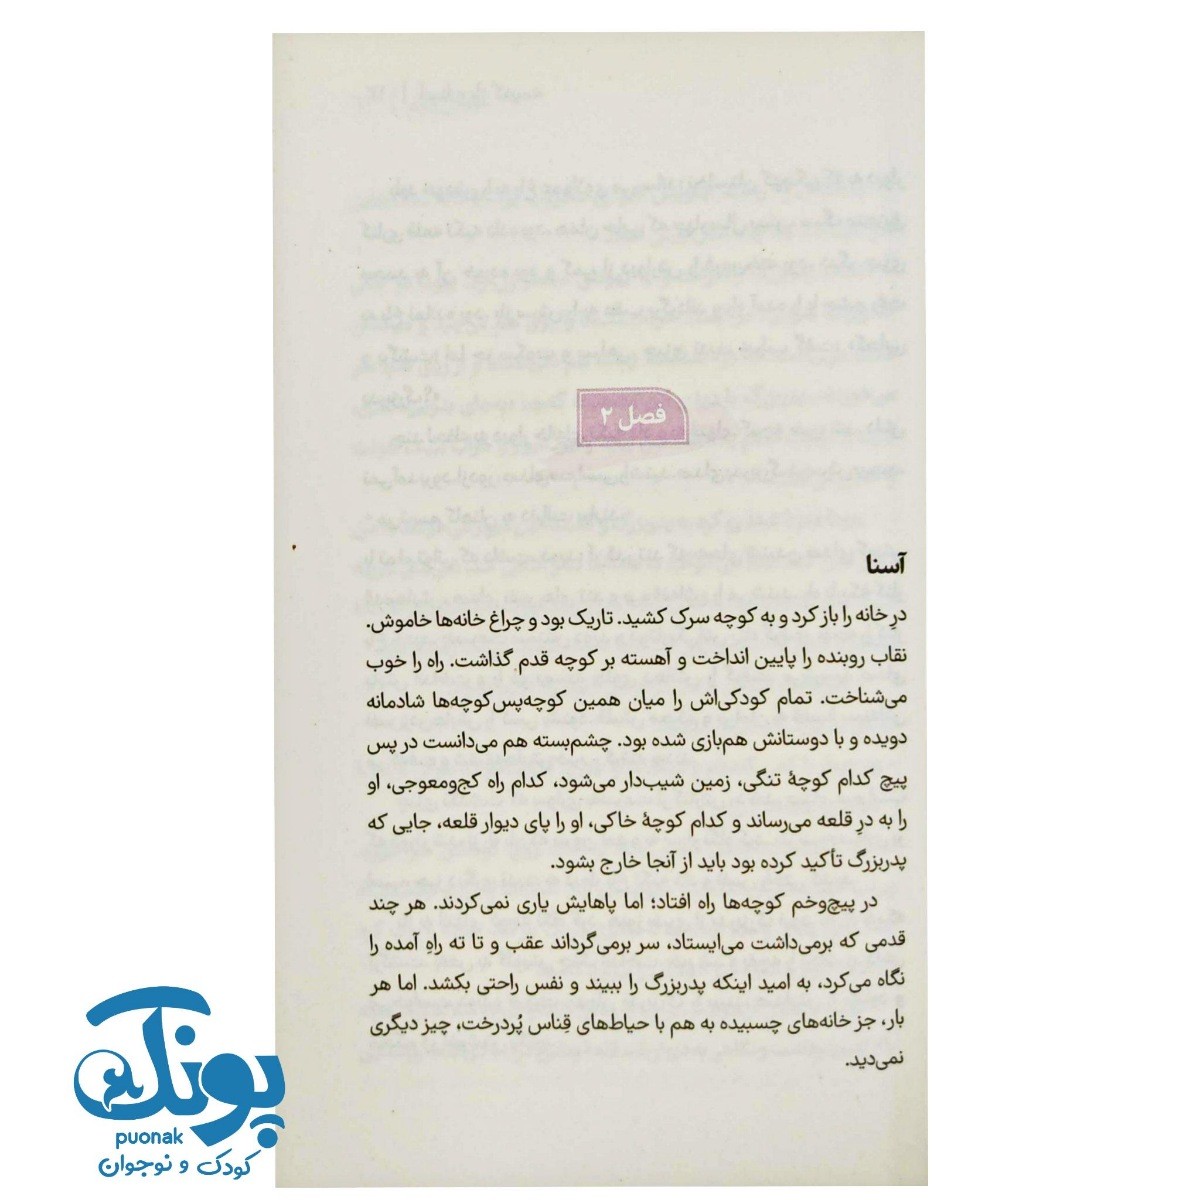 فصل ۲
آسنا
درِ خانه را باز کرد و به کوچه سرک کشید. تاریک بود و چراغ خانه‌ها خاموش.
نقاب روبنده را پایین انداخت و آهسته بر کوچه قدم گذاشت. راه را خوب
می‌شناخت. تمام کودکی‌اش را میان همین کوچه‌پس‌کوچه‌ها شادمانه
دویده و با دوستانش هم‌بازی شده بود. چشم‌بسته هم می‌دانست در پس
پیچ کدام کوچهٔ تنگی، زمین شیب‌دار می‌شود، کدام راه کج‌ومعوجی، او
را به درِ قلعه می‌رساند و کدام کوچهٔ خاکی، او را پای دیوار قلعه، جایی که
پدربزرگ تأکید کرده بود باید از آنجا خارج بشود.
در پیچ‌وخم کوچه‌ها راه افتاد؛ اما پاهایش یاری نمی‌کردند. هر چند
قدمی که برمی‌داشت می‌ایستاد، سر برمی‌گرداند عقب و تا ته راهِ آمده را
نگاه می‌کرد، به امید اینکه پدربزرگ را ببیند و نفس راحتی بکشد. اما هر
بار، جز خانه‌های چسبیده به هم با حیاط‌های قِناس پُردرخت، چیز دیگری
نمی‌دید.
پونک
puonak
کودک و نوجوان